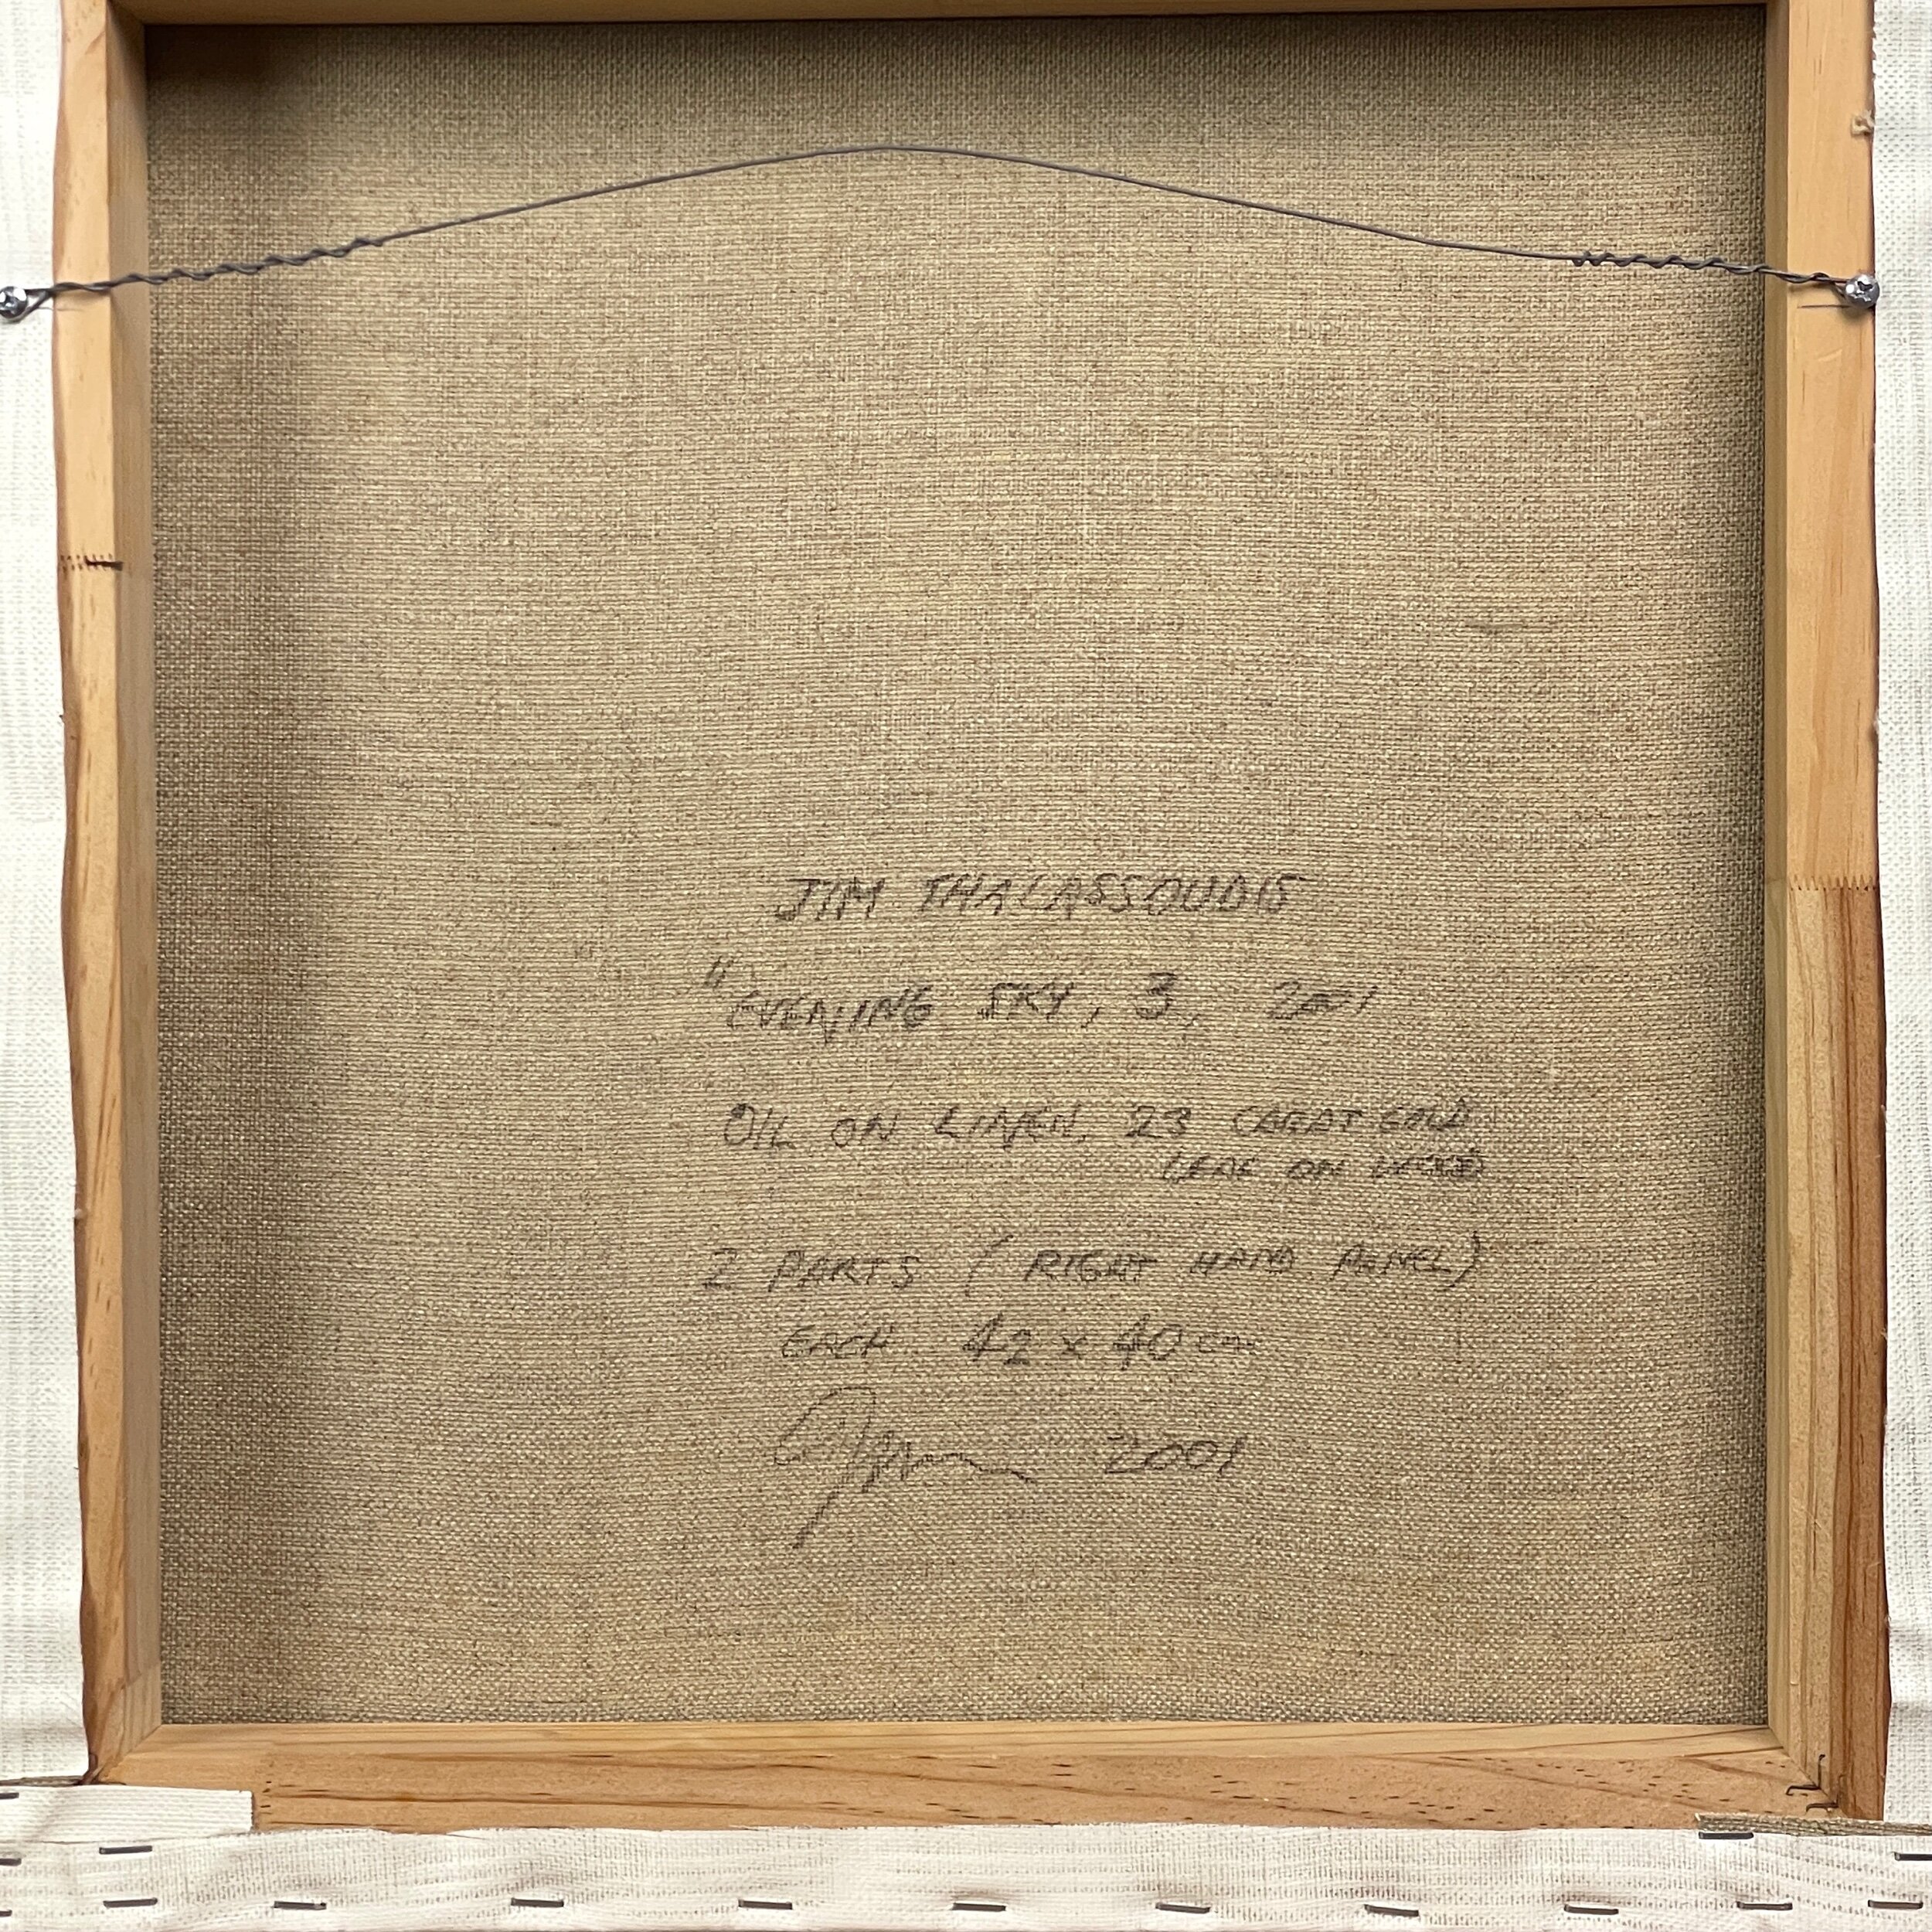 JIM THALASSOUDIS
"EVENING SKY, 3, 2001
OIL ON LINEN, 23 CARAT GOLD
LEAF ON WOOD
2 PARTS (RIGHT HAND PANEL)
EACH 42 x 40 cm
2001